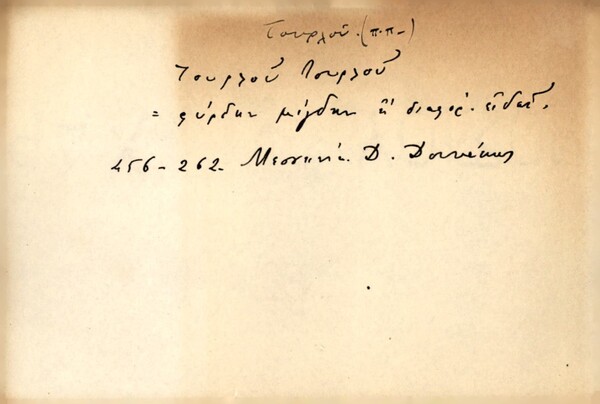 Τουρλοῦ. (π.π-)
Τουρλοῦ Τουρλοῦ
= φύρδην μίγδην ἢ διαφόρ. εἰδῶν.
456-262. Μεσσηνία. Δ. Δουκάκης